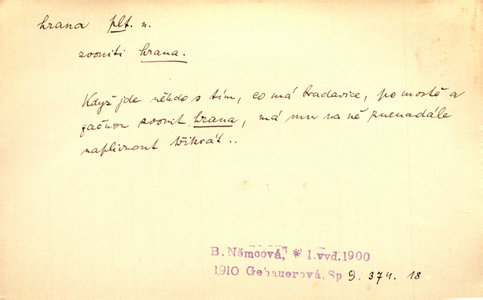 hrana plt. n.
zvoniti hrana.
Když jde někdo s tím, co má bradavice, po mostě a
začnou zvonit hrana, má mu na ně znenadále
naplivnout třikrát..
B. Němcová, * 1. vyd. 1900
1910 Gebauerová, Sp 9. 374. 18